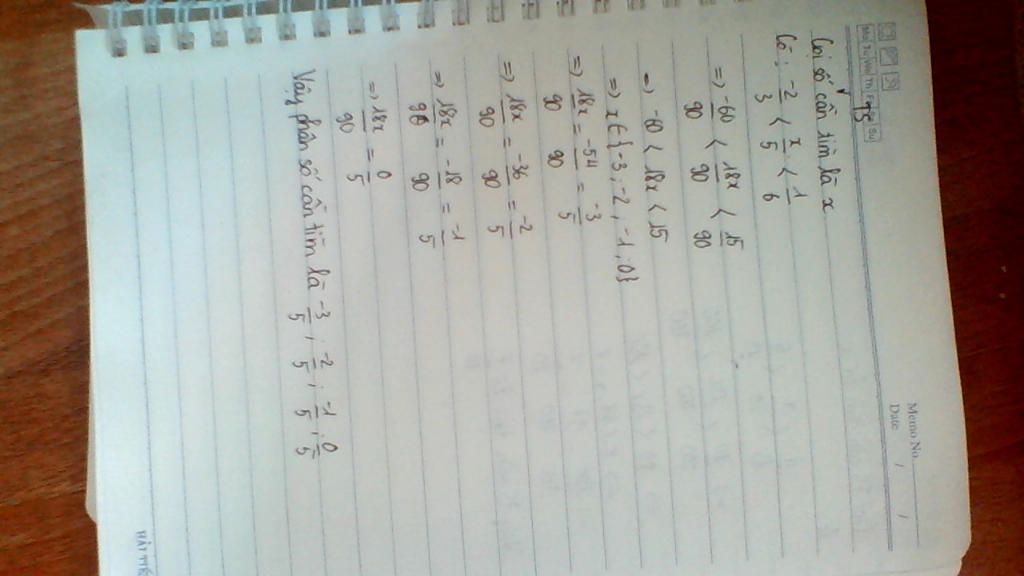 Memo No.
Date / /
Gọi số cần tìm là x/5
Có: -2/3 < x/5 < 1/6
=> -60/90 < 18x/90 < 15/90
=> -60 < 18x < 15
=> x ∈ {-3, -2, -1, 0}
=> 18x/90 = -54/90 = -3/5
=> 18x/90 = -36/90 = -2/5
=> 18x/90 = -18/90 = -1/5
=> 18x/90 = 0/5
Vậy phân số cần tìm là -3/5; -2/5; -1/5; 0/5
HẢI TIẾ